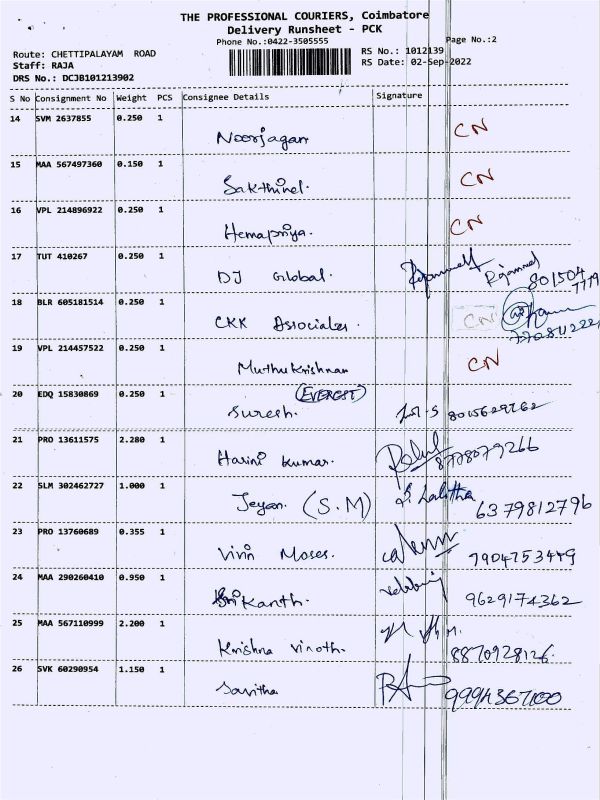 THE PROFESSIONAL COURIERS, Coimbatore
Delivery Runsheet - PCK
Phone No.:0422-3505555
Page No.:2
Route: CHETTIPALAYAM ROAD
RS No.: 1012139
Staff: RAJA
RS Date: 02-Sep-2022
DRS No.: DCJB101213902
S No Consignment No Weight PCS Consignee Details Signature
14 SVM 2637855 0.250 1
Noorjagan CN
15 MAA 567497360 0.150 1
Sakthivel. CN
16 VPL 214896922 0.250 1
Hemapriya. CN
17 TUT 410267 0.250 1
DJ Global. 801504
7779
18 BLR 605181514 0.250 1
CKK Associates. CN
19 VPL 214457522 0.250 1
Muthukrishnan CN
20 EDQ 15830869 0.250 1
(EVEREST)
Suresh.
21 PRO 13611575 2.280 1
Harini Kumar. 8778079266
22 SLM 302462727 1.000 1
Jeyan. (S.M) S. Lalitha
6379812796
23 PRO 13760689 0.355 1
Vivin Moses. 7904753449
24 MAA 290260410 0.950 1
Srikanth. 9629174362
25 MAA 567110999 2.200 1
Krishna vinoth. 8870928126.
26 SVK 60290954 1.150 1
Savitha 9994367100